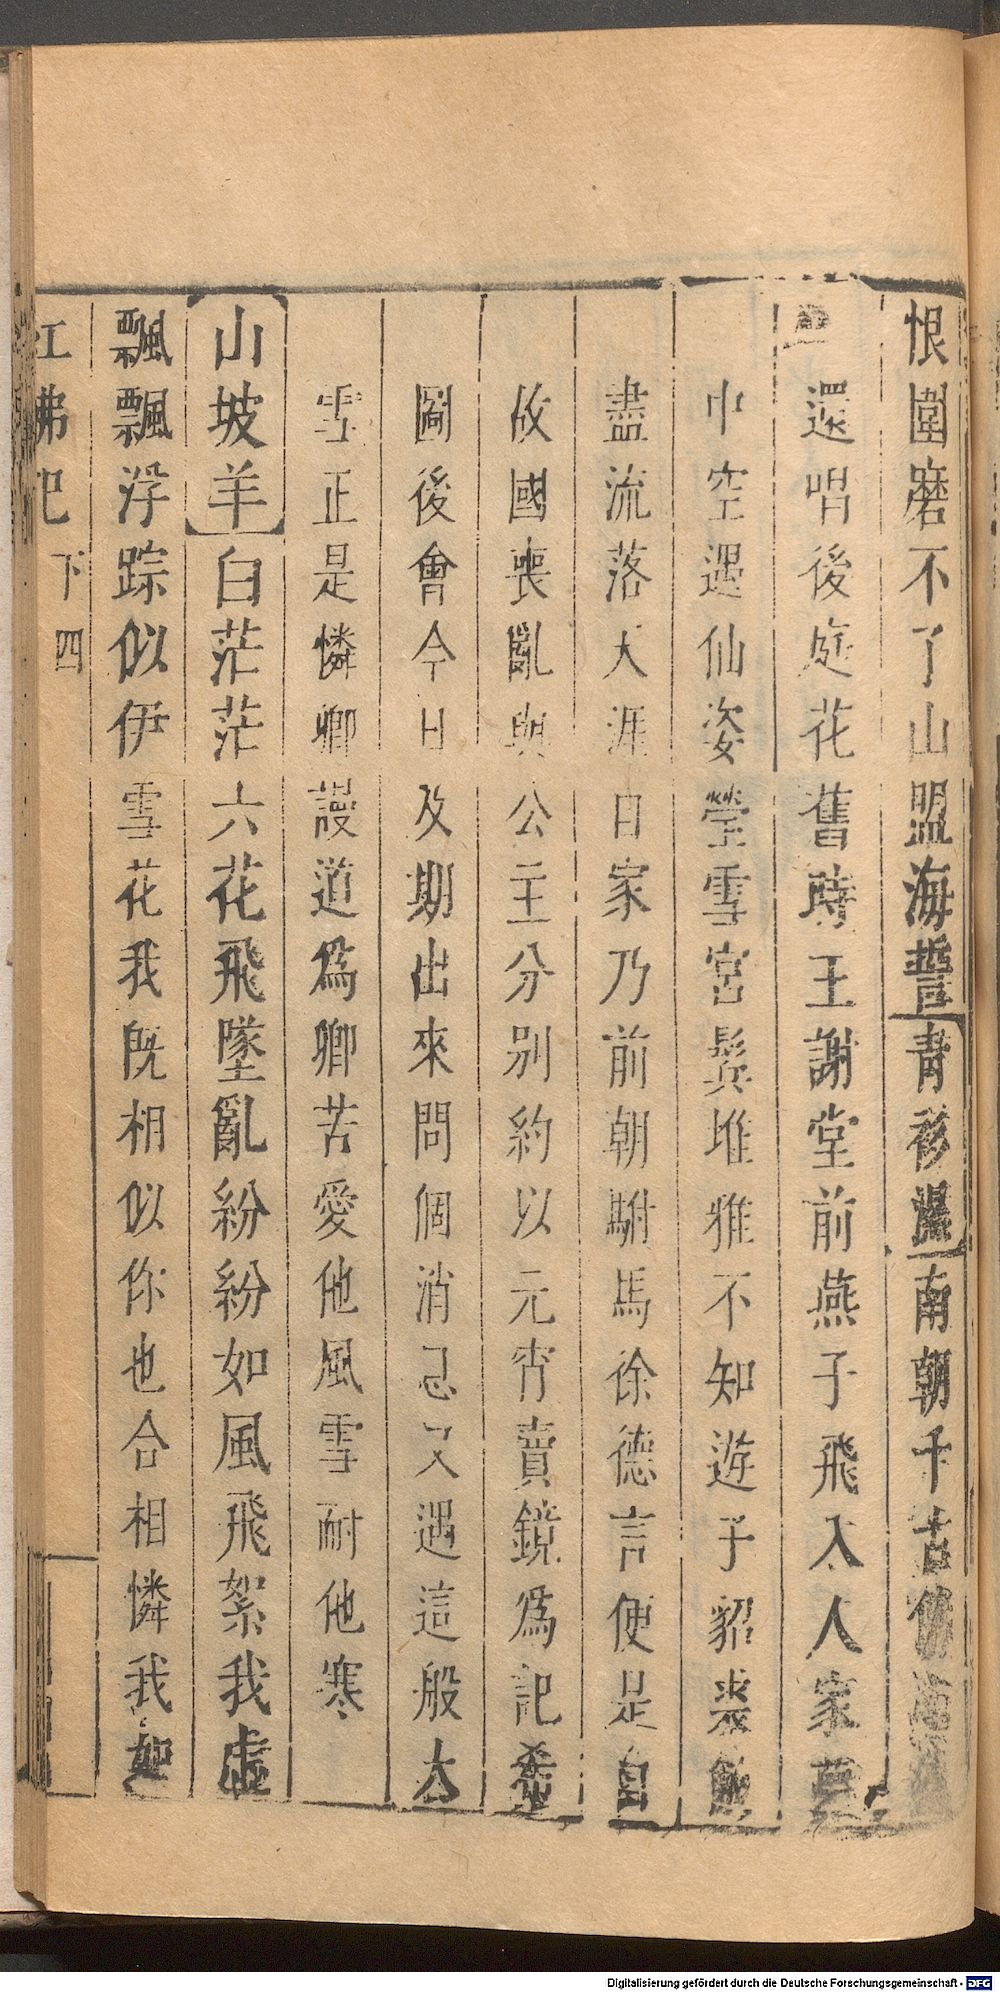 恨圍磨不了山盟海誓【青衫濕】南朝千古傷
還唱後庭花舊時王謝堂前燕子飛入人家
巾空遇仙姿瑩雪宮鬂堆雅不知遊子貂裘
盡流落天涯白家乃前朝駙馬徐德言便是自
故國喪亂與公主分別約以元宵賣鏡爲記希
圖後會今日及期出來問個消息又遇這般大
雪正是憐卿謾道爲卿苦愛他風雪耐他寒
【山坡羊】白茫茫六花飛墜亂紛紛如風飛絮我虛
飄飄浮踪似伊雪花我既相似你也合相憐我
紅拂記 下 四
Digitalisierung gefördert durch die Deutsche Forschungsgemeinschaft - DFG